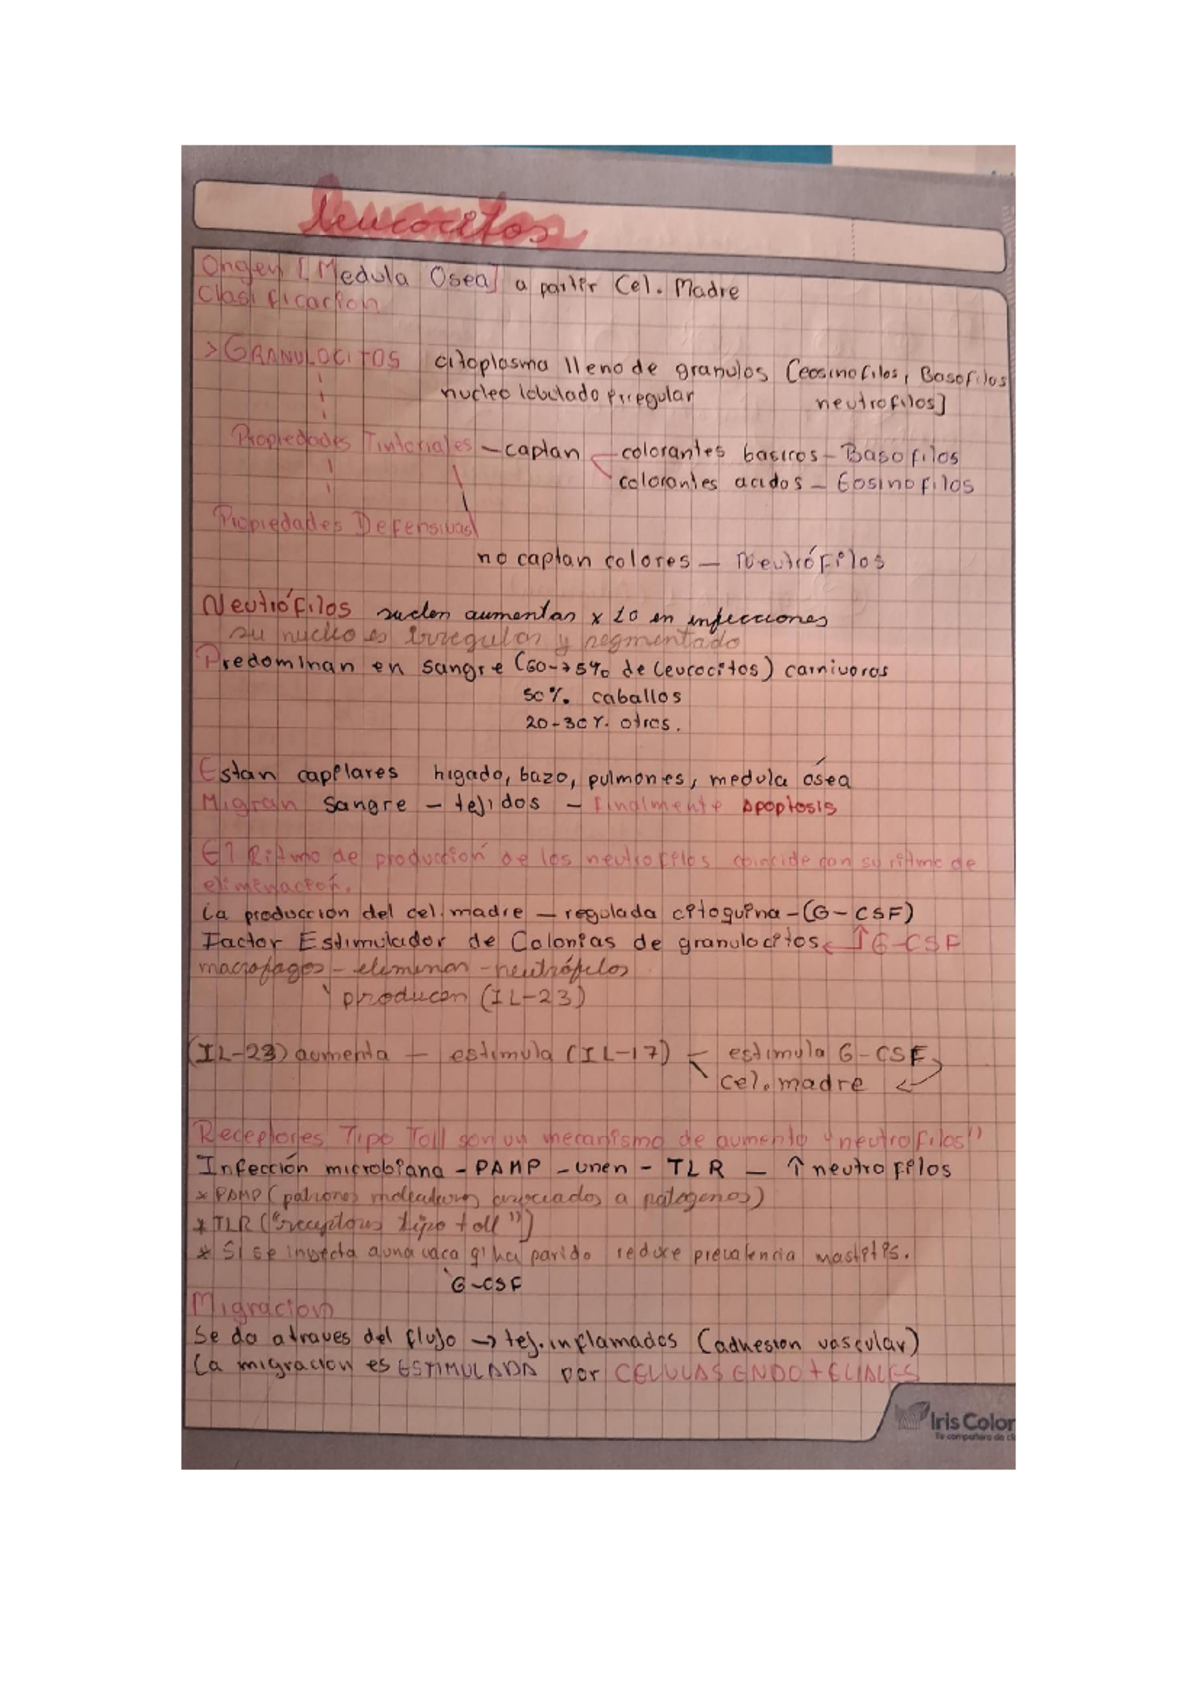 Leucocitos
Origen [Medula Osea] a partir Cel. Madre
Clasificacion
> GRANULOCITOS citoplasma lleno de granulos [eosinofilos, Basofilos
nucleo lobulado irregular neutrofilos]
Propiedades Tintoriales - captan colorantes basicos - Basofilos
colorantes acidos - Eosinofilos
Propiedades Defensivas
no captan colores - Neutrófilos
Neutrófilos suelen aumentar x 10 en infecciones
su nucleo es irregular y segmentado
Predominan en sangre (60-75% de leucocitos) carnivoros
50% caballos
20-30% otros.
Estan capilares higado, bazo, pulmones, medula ósea
Migran sangre - tejidos - finalmente Apoptosis
El Ritmo de producción de los neutrofilos coincide con su ritmo de
eliminación.
La produccion del cel. madre - regulada citoquina - (G-CSF)
Factor Estimulador de Colonias de granulocitos ← ↑ G-CSF
macrofagos - eliminan - neutrófilos
producen (IL-23)
(IL-23) aumenta - estimula (IL-17) - estimula G-CSF
cel. madre ←
Receptores Tipo Toll son un mecanismo de aumento "neutrofilos"
Infección microbiana - PAMP - unen - TLR - ↑ neutrofilos
* PAMP (patrones moleculares asociados a patogenos)
* TLR ("receptores tipo toll")
* Si se inyecta a una vaca q' ha parido reduce prevalencia mastitis.
G-CSF
Migracion
Se da a traves del flujo → tej. inflamados (adhesion vascular)
La migracion es ESTIMULADA por CELULAS ENDOTELIALES
Iris Color